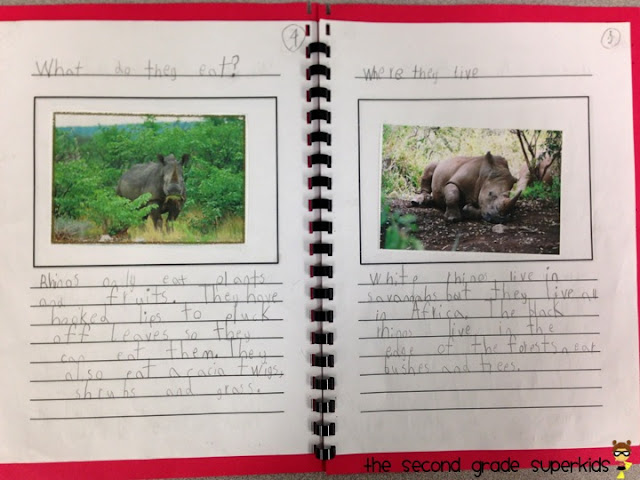 4
What do they eat?
Rhinos only eat plants
and fruits. They have
hooked lips to pluck
off leaves so they
can eat them. They
also eat acacia twigs,
shrubs and grass.
5
Where they live
White rhinos live in
savannahs but they live all
in Africa. The black
rhinos live in the
edge of the forests near
bushes and trees.
the second grade superkids